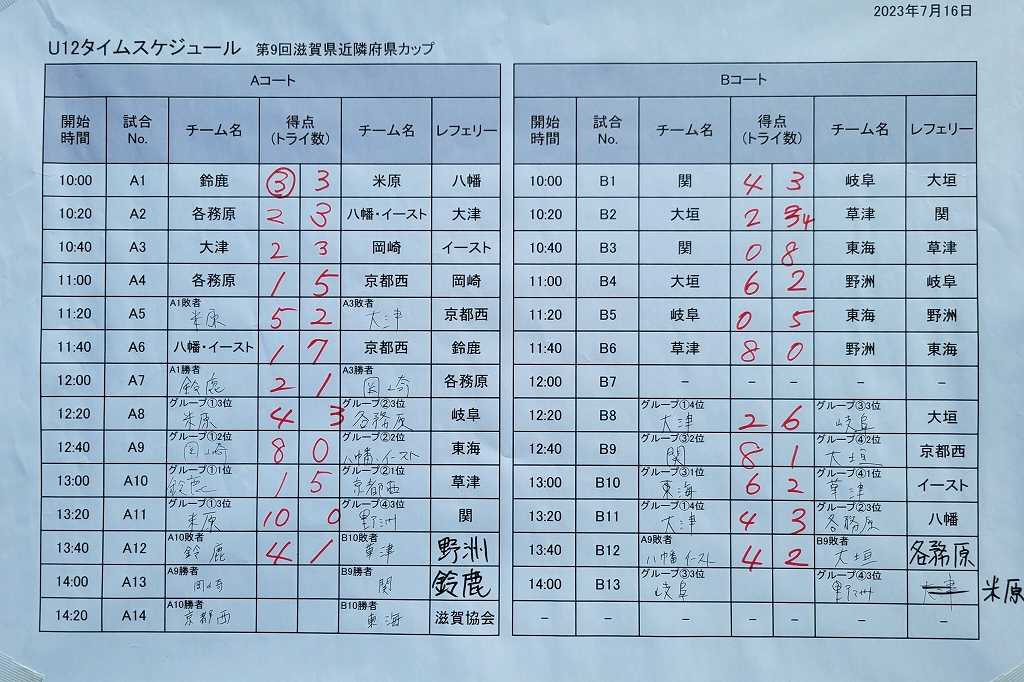 2023年7月16日
U12タイムスケジュール 第9回滋賀県近隣府県カップ
Aコート
開始時間 試合No. チーム名 得点(トライ数) チーム名 レフェリー
10:00 A1 鈴鹿 ③ 3 米原 八幡
10:20 A2 各務原 2 3 八幡・イースト 大津
10:40 A3 大津 2 3 岡崎 イースト
11:00 A4 各務原 1 5 京都西 岡崎
11:20 A5 A1敗者 米原 5 2 A3敗者 大津 京都西
11:40 A6 八幡・イースト 1 7 京都西 鈴鹿
12:00 A7 A1勝者 鈴鹿 2 1 A3勝者 岡崎 各務原
12:20 A8 グループ①3位 米原 4 3 グループ②3位 各務原 岐阜
12:40 A9 グループ①2位 岡崎 8 0 グループ②2位 八幡・イースト 東海
13:00 A10 グループ①1位 鈴鹿 1 5 グループ②1位 京都西 草津
13:20 A11 グループ①3位 米原 10 0 グループ④3位 野洲 関
13:40 A12 A10敗者 鈴鹿 4 1 B10敗者 草津 野洲
14:00 A13 A9勝者 岡崎 B9勝者 関 鈴鹿
14:20 A14 A10勝者 京都西 B10勝者 東海 滋賀協会
Bコート
開始時間 試合No. チーム名 得点(トライ数) チーム名 レフェリー
10:00 B1 関 4 3 岐阜 大垣
10:20 B2 大垣 2 4 草津 関
10:40 B3 関 0 8 東海 草津
11:00 B4 大垣 6 2 野洲 岐阜
11:20 B5 岐阜 0 5 東海 野洲
11:40 B6 草津 8 0 野洲 東海
12:00 B7 － － － － －
12:20 B8 グループ①4位 大津 2 6 グループ③3位 岐阜 大垣
12:40 B9 グループ③2位 関 8 1 グループ④2位 大垣 京都西
13:00 B10 グループ③1位 東海 6 2 グループ④1位 草津 イースト
13:20 B11 グループ①4位 大津 4 3 グループ②3位 各務原 八幡
13:40 B12 A9敗者 八幡・イースト 4 2 B9敗者 大垣 各務原
14:00 B13 グループ③3位 岐阜 グループ④3位 野洲 大津 米原
－ － － － － － －